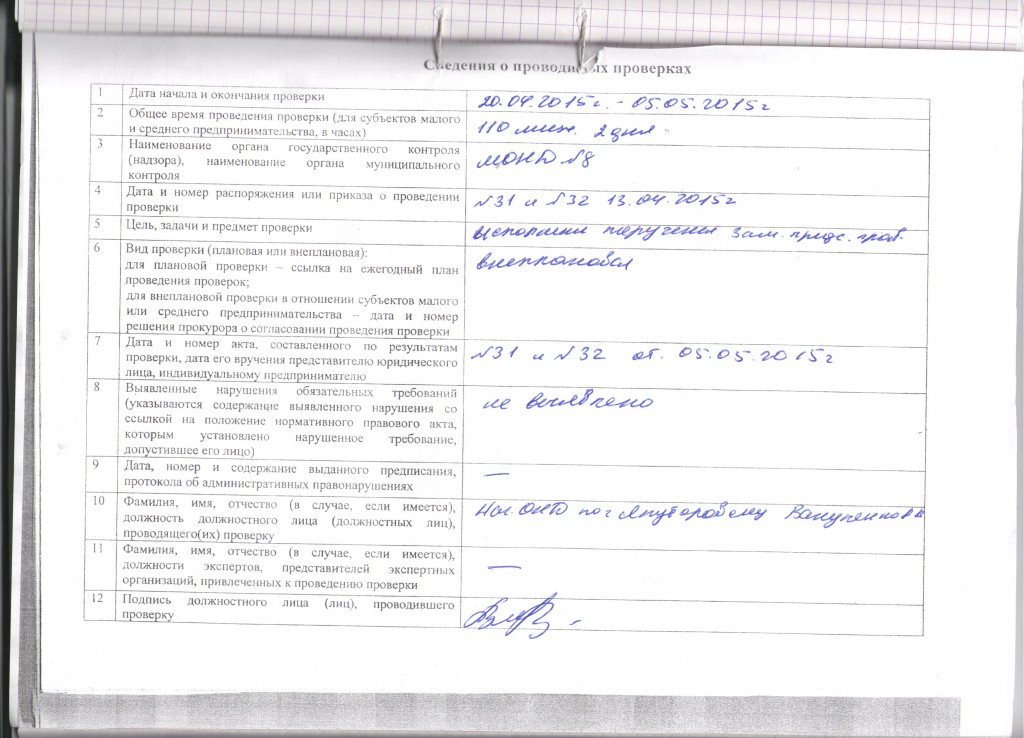 Сведения о проводимых проверках
1 Дата начала и окончания проверки 20.04.2015г. - 05.05.2015г
2 Общее время проведения проверки (для субъектов малого
и среднего предпринимательства, в часах) 110 мин. 2 дня
3 Наименование органа государственного контроля
(надзора), наименование органа муниципального
контроля МОНД №8
4 Дата и номер распоряжения или приказа о проведении
проверки №31 и №32 13.04.2015г
5 Цель, задачи и предмет проверки зам. предс. прав.
6 Вид проверки (плановая или внеплановая): внеплановая
для плановой проверки – ссылка на ежегодный план
проведения проверок;
для внеплановой проверки в отношении субъектов малого
или среднего предпринимательства – дата и номер
решения прокурора о согласовании проведения проверки
7 Дата и номер акта, составленного по результатам
проверки, дата его вручения представителю юридического
лица, индивидуальному предпринимателю №31 и №32 от. 05.05.2015г
8 Выявленные нарушения обязательных требований
(указываются содержание выявленного нарушения со
ссылкой на положение нормативного правового акта,
которым установлено нарушенное требование,
допустившее его лицо) не выявлено
9 Дата, номер и содержание выданного предписания,
протокола об административных правонарушениях —
10 Фамилия, имя, отчество (в случае, если имеется),
должность должностного лица (должностных лиц),
проводящего(их) проверку по г
11 Фамилия, имя, отчество (в случае, если имеется),
должности экспертов, представителей экспертных
организаций, привлеченных к проведению проверки —
12 Подпись должностного лица (лиц), проводившего
проверку